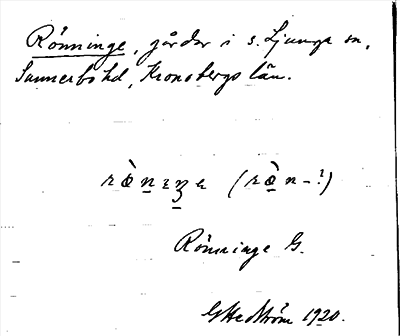 Rönninge, gårdar i s. Ljunga sn,
Sunnerbo hd, Kronobergs län.
rœ̀nɪŋe (rœ̀n-?)
Rönninge G.
G Hedström 1920.